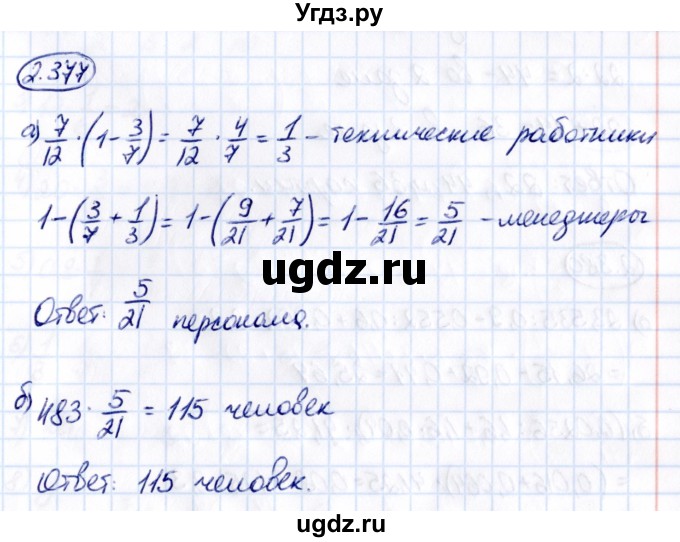 Угдз.ру
2.377
а) 7/12 · (1 - 3/7) = 7/12 · 4/7 = 1/3 - технические работники
1 - (3/7 + 1/3) = 1 - (9/21 + 7/21) = 1 - 16/21 = 5/21 - менеджеры
ugdz.ru
Ответ: 5/21 персонала.
б) 483 · 5/21 = 115 человек
Ответ: 115 человек.
ugdz.ru